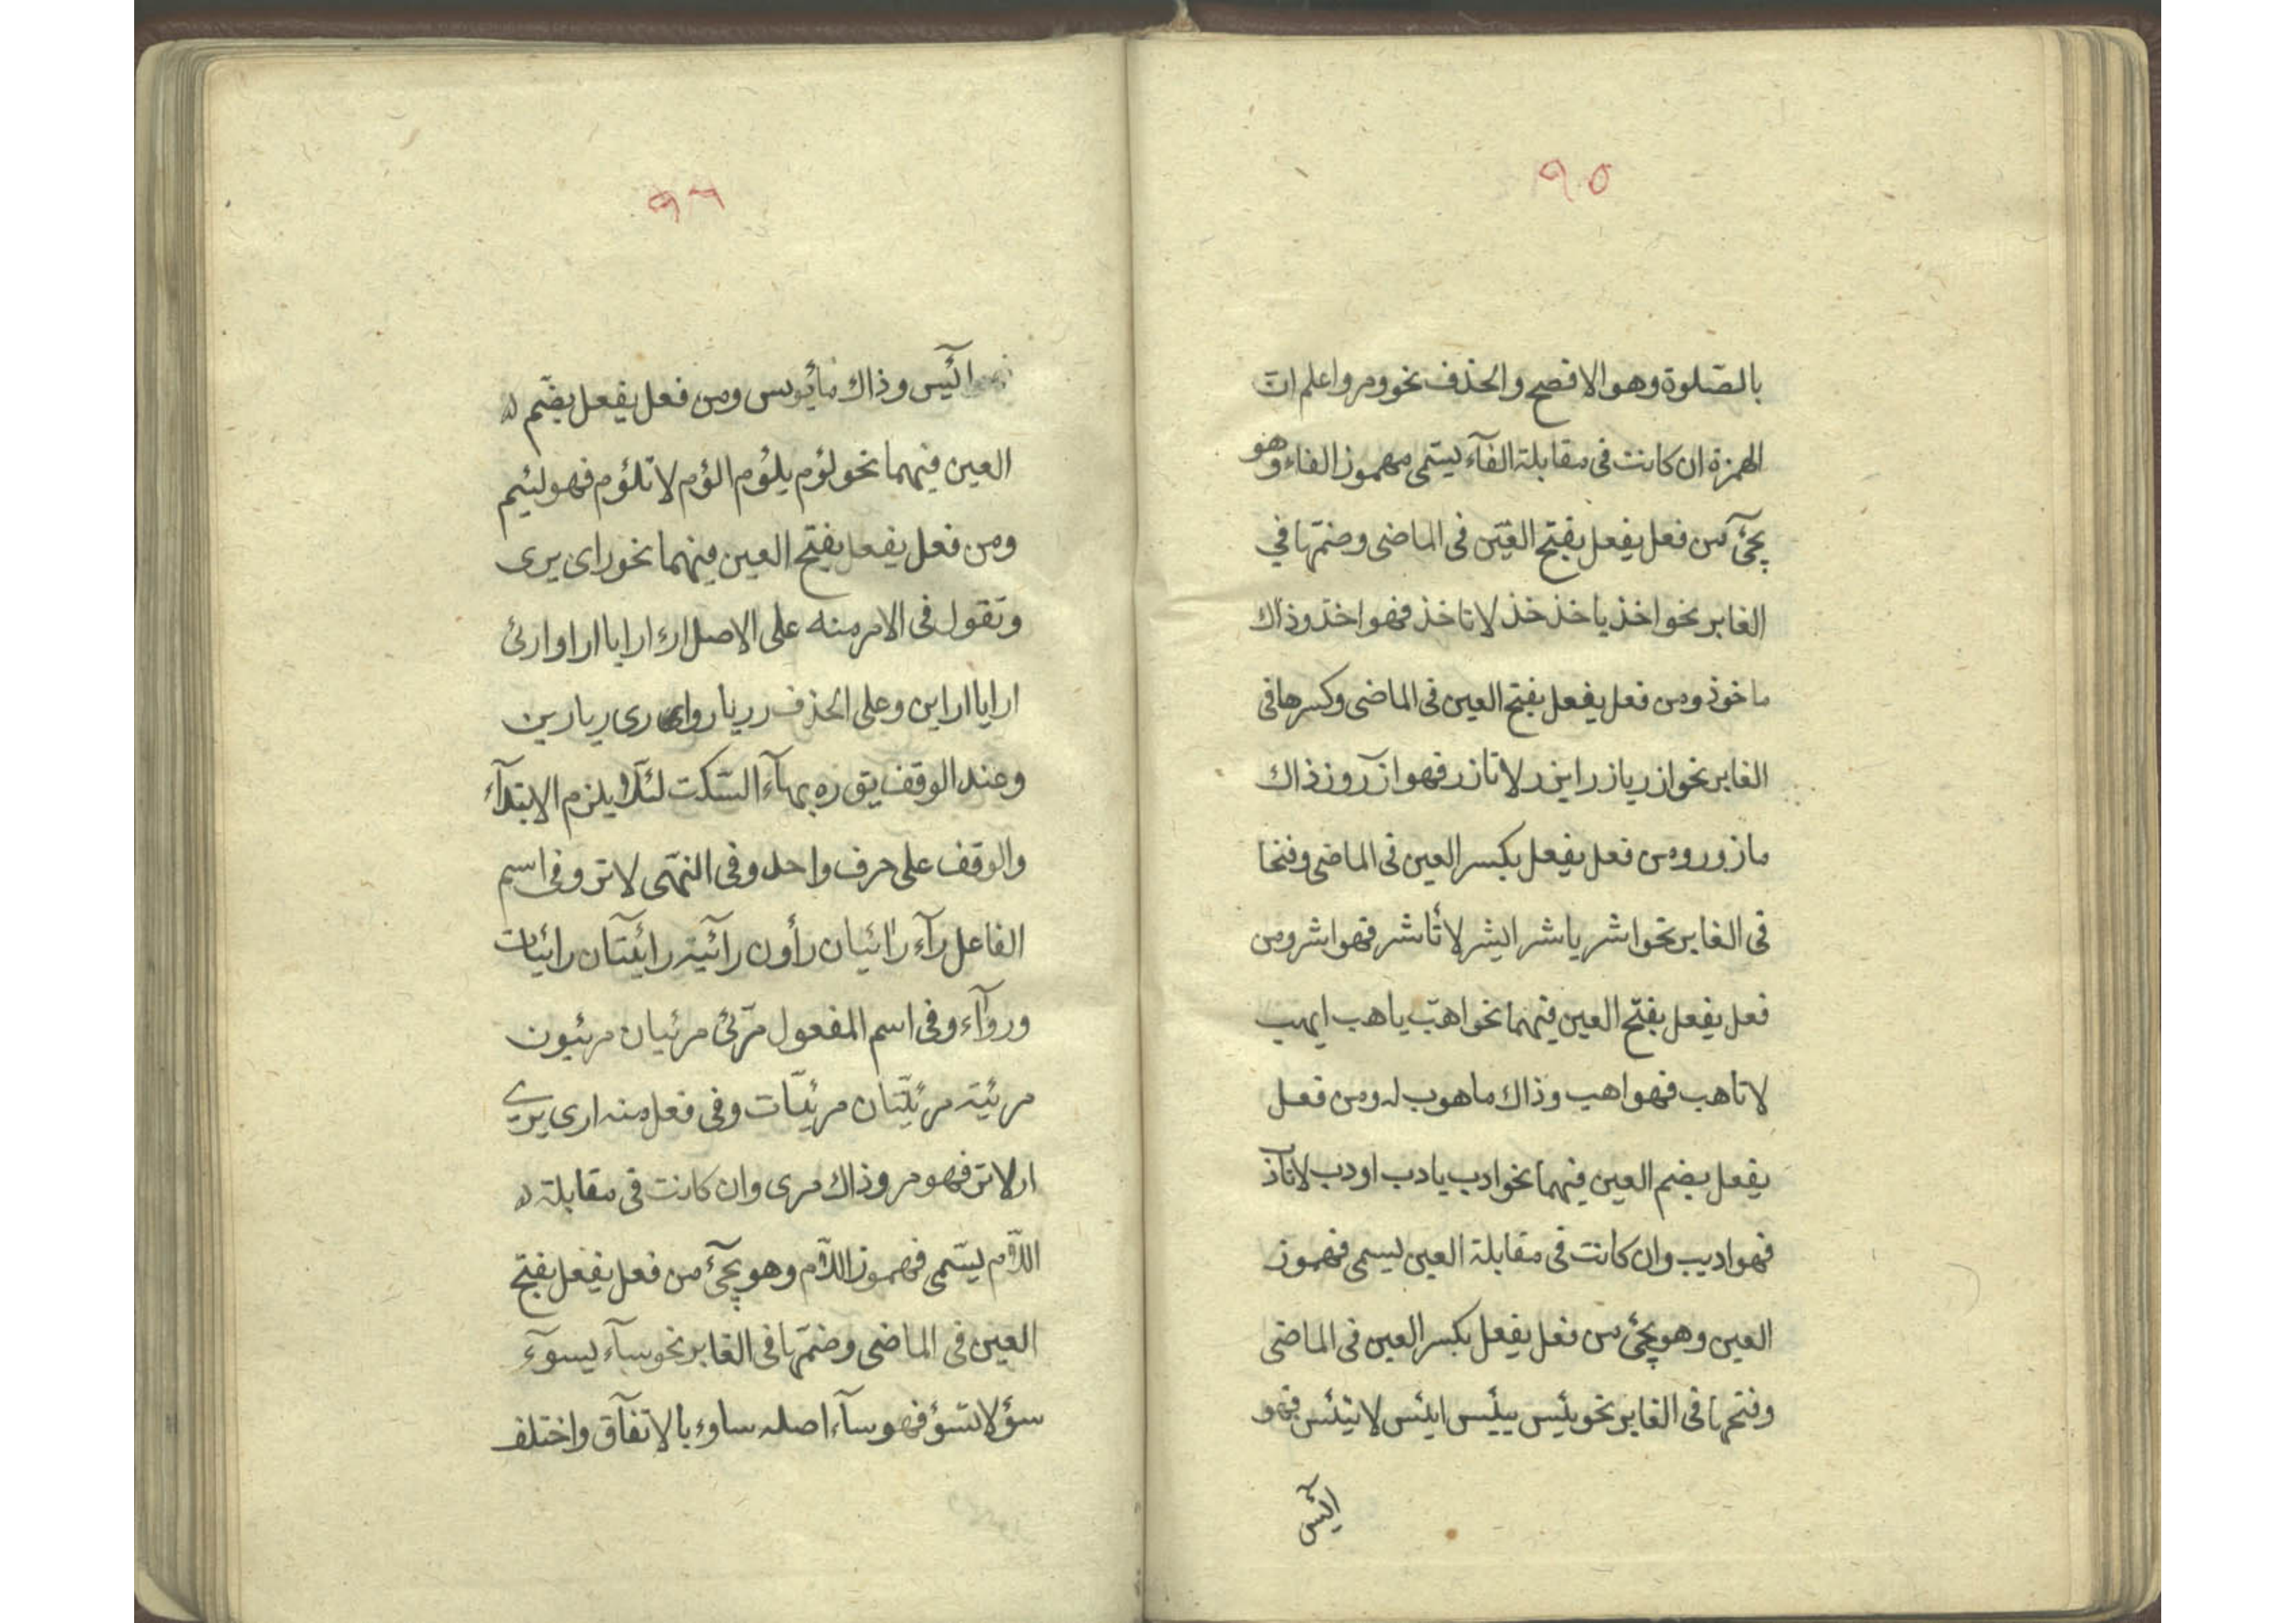 ٩٥
بالصّلوة وهو الافصح والحذف نحو ومر واعلم ان
الهمزة ان كانت فى مقابلة الفآء يسمّى مهموز الفاء وهو
يجئ من فعل يفعل بفتح العين فى الماضى وضمّها في
الغابر نحو اخذ ياخذ خذ لا تاخذ فهو اخذ وذاك
ماخوذ ومن فعل يفعل بفتح العين فى الماضى وكسرها فى
الغابر نحو ازر يازر ايزر لا تازر فهو آزر وذاك
مازور ومن فعل يفعل بكسر العين فى الماضى وفتحا
فى الغابر نحو اشر ياشر ايشر لا تأشر فهو اشر ومن
فعل يفعل بفتح العين فيهما نحو اهب ياهب ايهب
لا تاهب فهو اهب وذاك ماهوب له ومن فعل
يفعل بضم العين فيهما نحو ادب يادب اودب لا تأدب
فهو اديب وان كانت فى مقابلة العين ليسمى فهموز
العين وهو يجئ من فعل يفعل بكسر العين فى الماضى
وفتحها فى الغابر نحو يئس ييئس ايئس لا تيئس فهو
آئيس
٩٦
آئيس وذاك مأيوس ومن فعل يفعل بضّم
العين فيهما نحو لؤم يلؤم الؤم لا تلؤم فهو لئيم
ومن فعل يفعل بفتح العين فيهما نحو راى يرى
وتقول فى الامر منه على الاصل ارء ارايا اراو ارئ
ارايا اراين وعلى الحذف ر ريا روا رى ريا رين
وعند الوقف يق ره بهآء السّكت لئلّا يلزم الابتدآء
والوقف على حرف واحد وفى النهّى لا تر وفى اسم
الفاعل رآء رائيان رأون رآئية رايئتان رائيات
وروآء وفى اسم المفعول مرّئ مرئيان مرئيون
مرئية مرئيّتان مرئيّات وفى فعل منه ارى يرى
ار لا تر فهو مر وذاك مرى وان كانت فى مقابلة
اللاّم يسّمى فهموز اللاّم وهو يجئ من فعل يفعل بفتح
العين فى الماضى وضمّها فى الغابر نحو سآء يسوآء
سؤ لا تسؤ فهو سآء اصله ساوء بالاتفآق واختلف